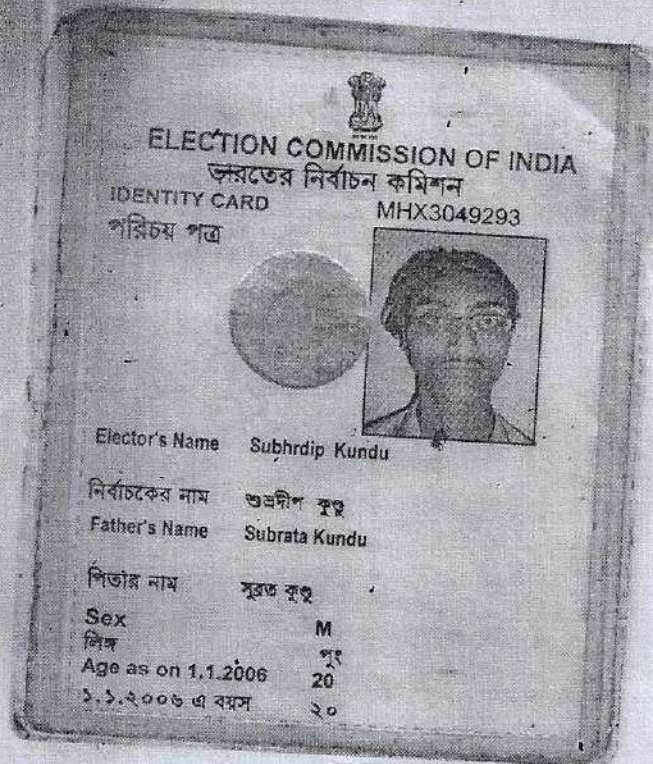 ELECTION COMMISSION OF INDIA
ভারতের নির্বাচন কমিশন
IDENTITY CARD
MHX3049293
পরিচয় পত্র
Elector's Name Subhrdip Kundu
নির্বাচকের নাম শুভ্রদীপ কুণ্ডু
Father's Name Subrata Kundu
পিতার নাম সুব্রত কুণ্ডু
Sex M
লিঙ্গ পুং
Age as on 1.1.2006 20
১.১.২০০৬ এ বয়স ২০